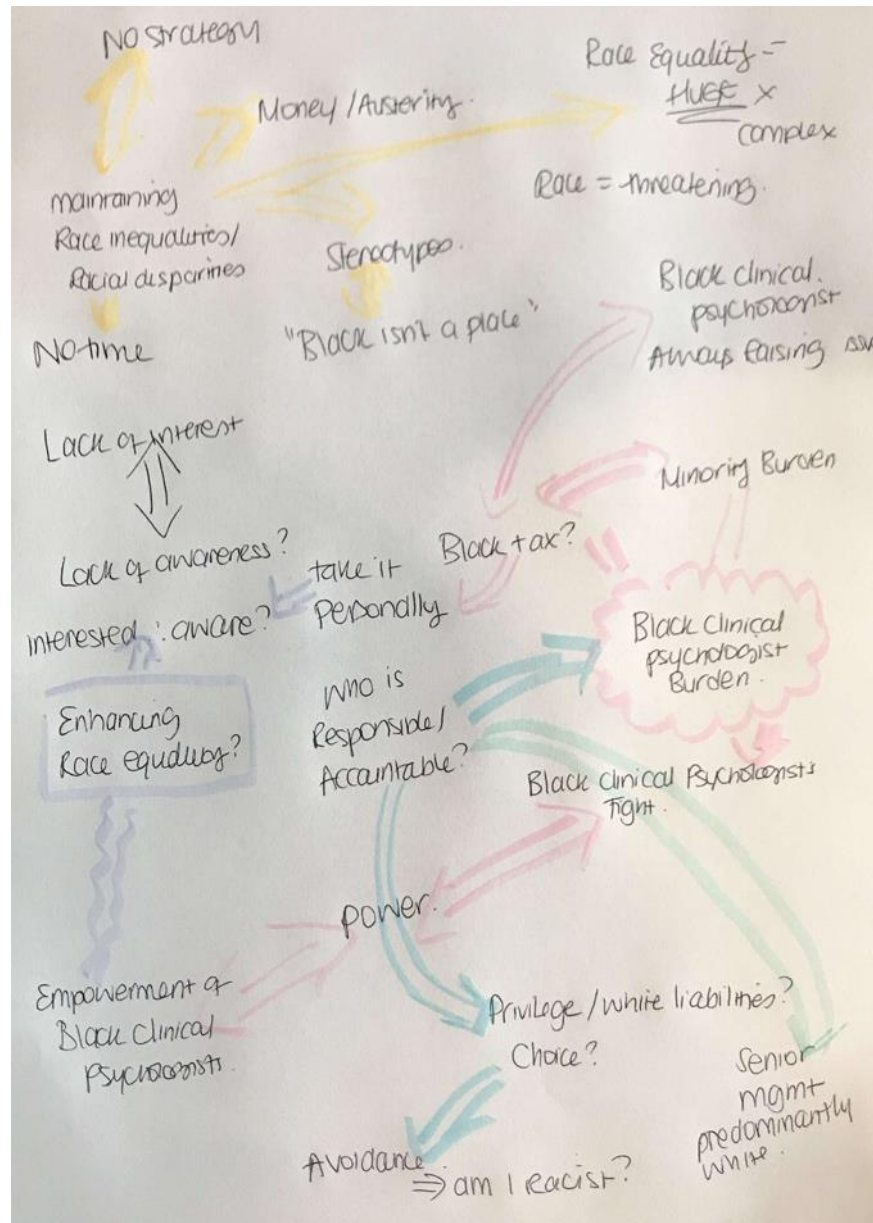 No strategy
Money / Austerity.
Race Equality =
HUGE x
complex
Race = threatening.
maintaining
Race inequalities/
Racial disparities
Stereotypes.
"Black isn't a place"
No time
Black clinical.
psychologist
Always raising
Lack of interest
Minority Burden
Lack of awareness?
Black tax?
take it
Personally
Interested : aware?
Black Clinical
psychologist
Burden.
Enhancing
Race equality?
Who is
Responsible/
Accountable?
Black Clinical Psychologists
Fight.
Power.
Empowerment of
Black Clinical
Psychologists.
Privilege / white liabilities?
Choice?
Senior
mgmt
predominantly
white.
Avoidance
⇒ am I racist?